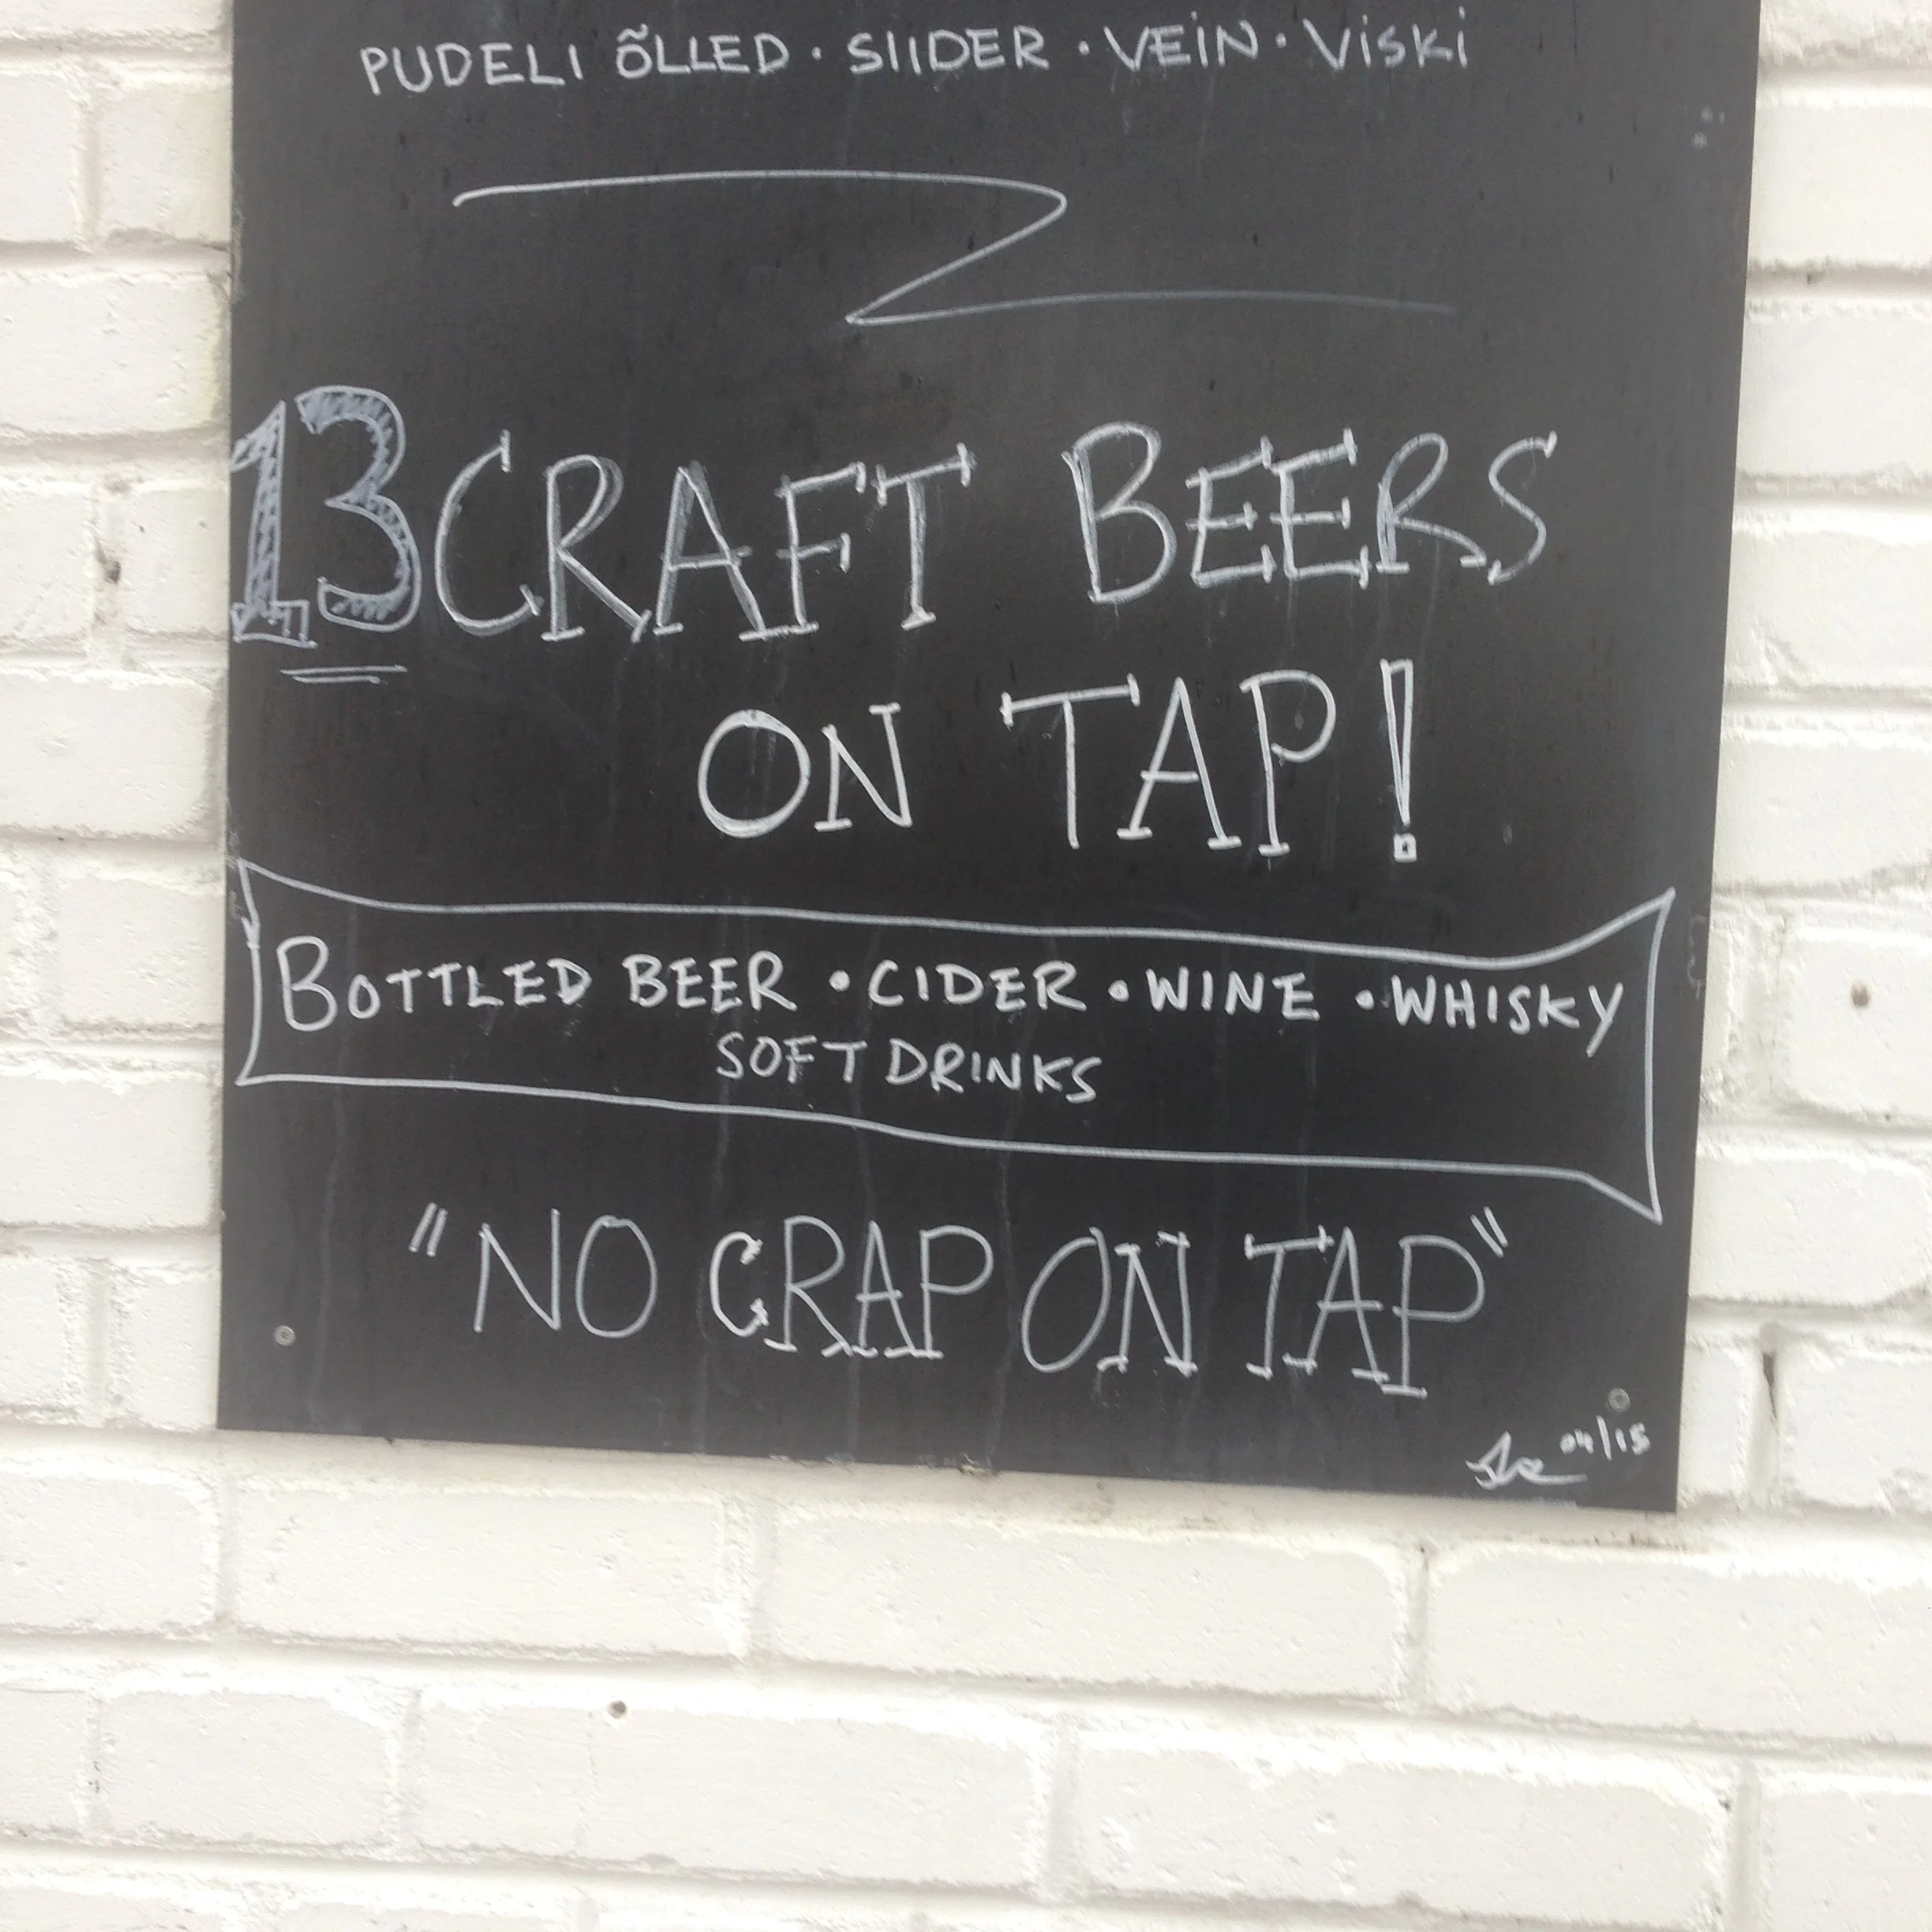 PUDELI ÕLLED · SIIDER · VEIN · VISKI
13 CRAFT BEERS
ON TAP!
BOTTLED BEER • CIDER • WINE • WHISKY
SOFT DRINKS
"NO CRAP ON TAP"
04/15